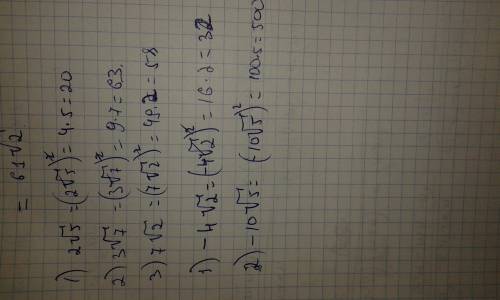 = 61√2
1) 2√5 = (2√5)² = 4·5 = 20
2) 3√7 = (3√7)² = 9·7 = 63.
3) 7√2 = (7√2)² = 49·2 = 58
1) -4√2 = (-4√2)² = 16·2 = 32
2) -10√5 = (-10√5)² = 100·5 = 500